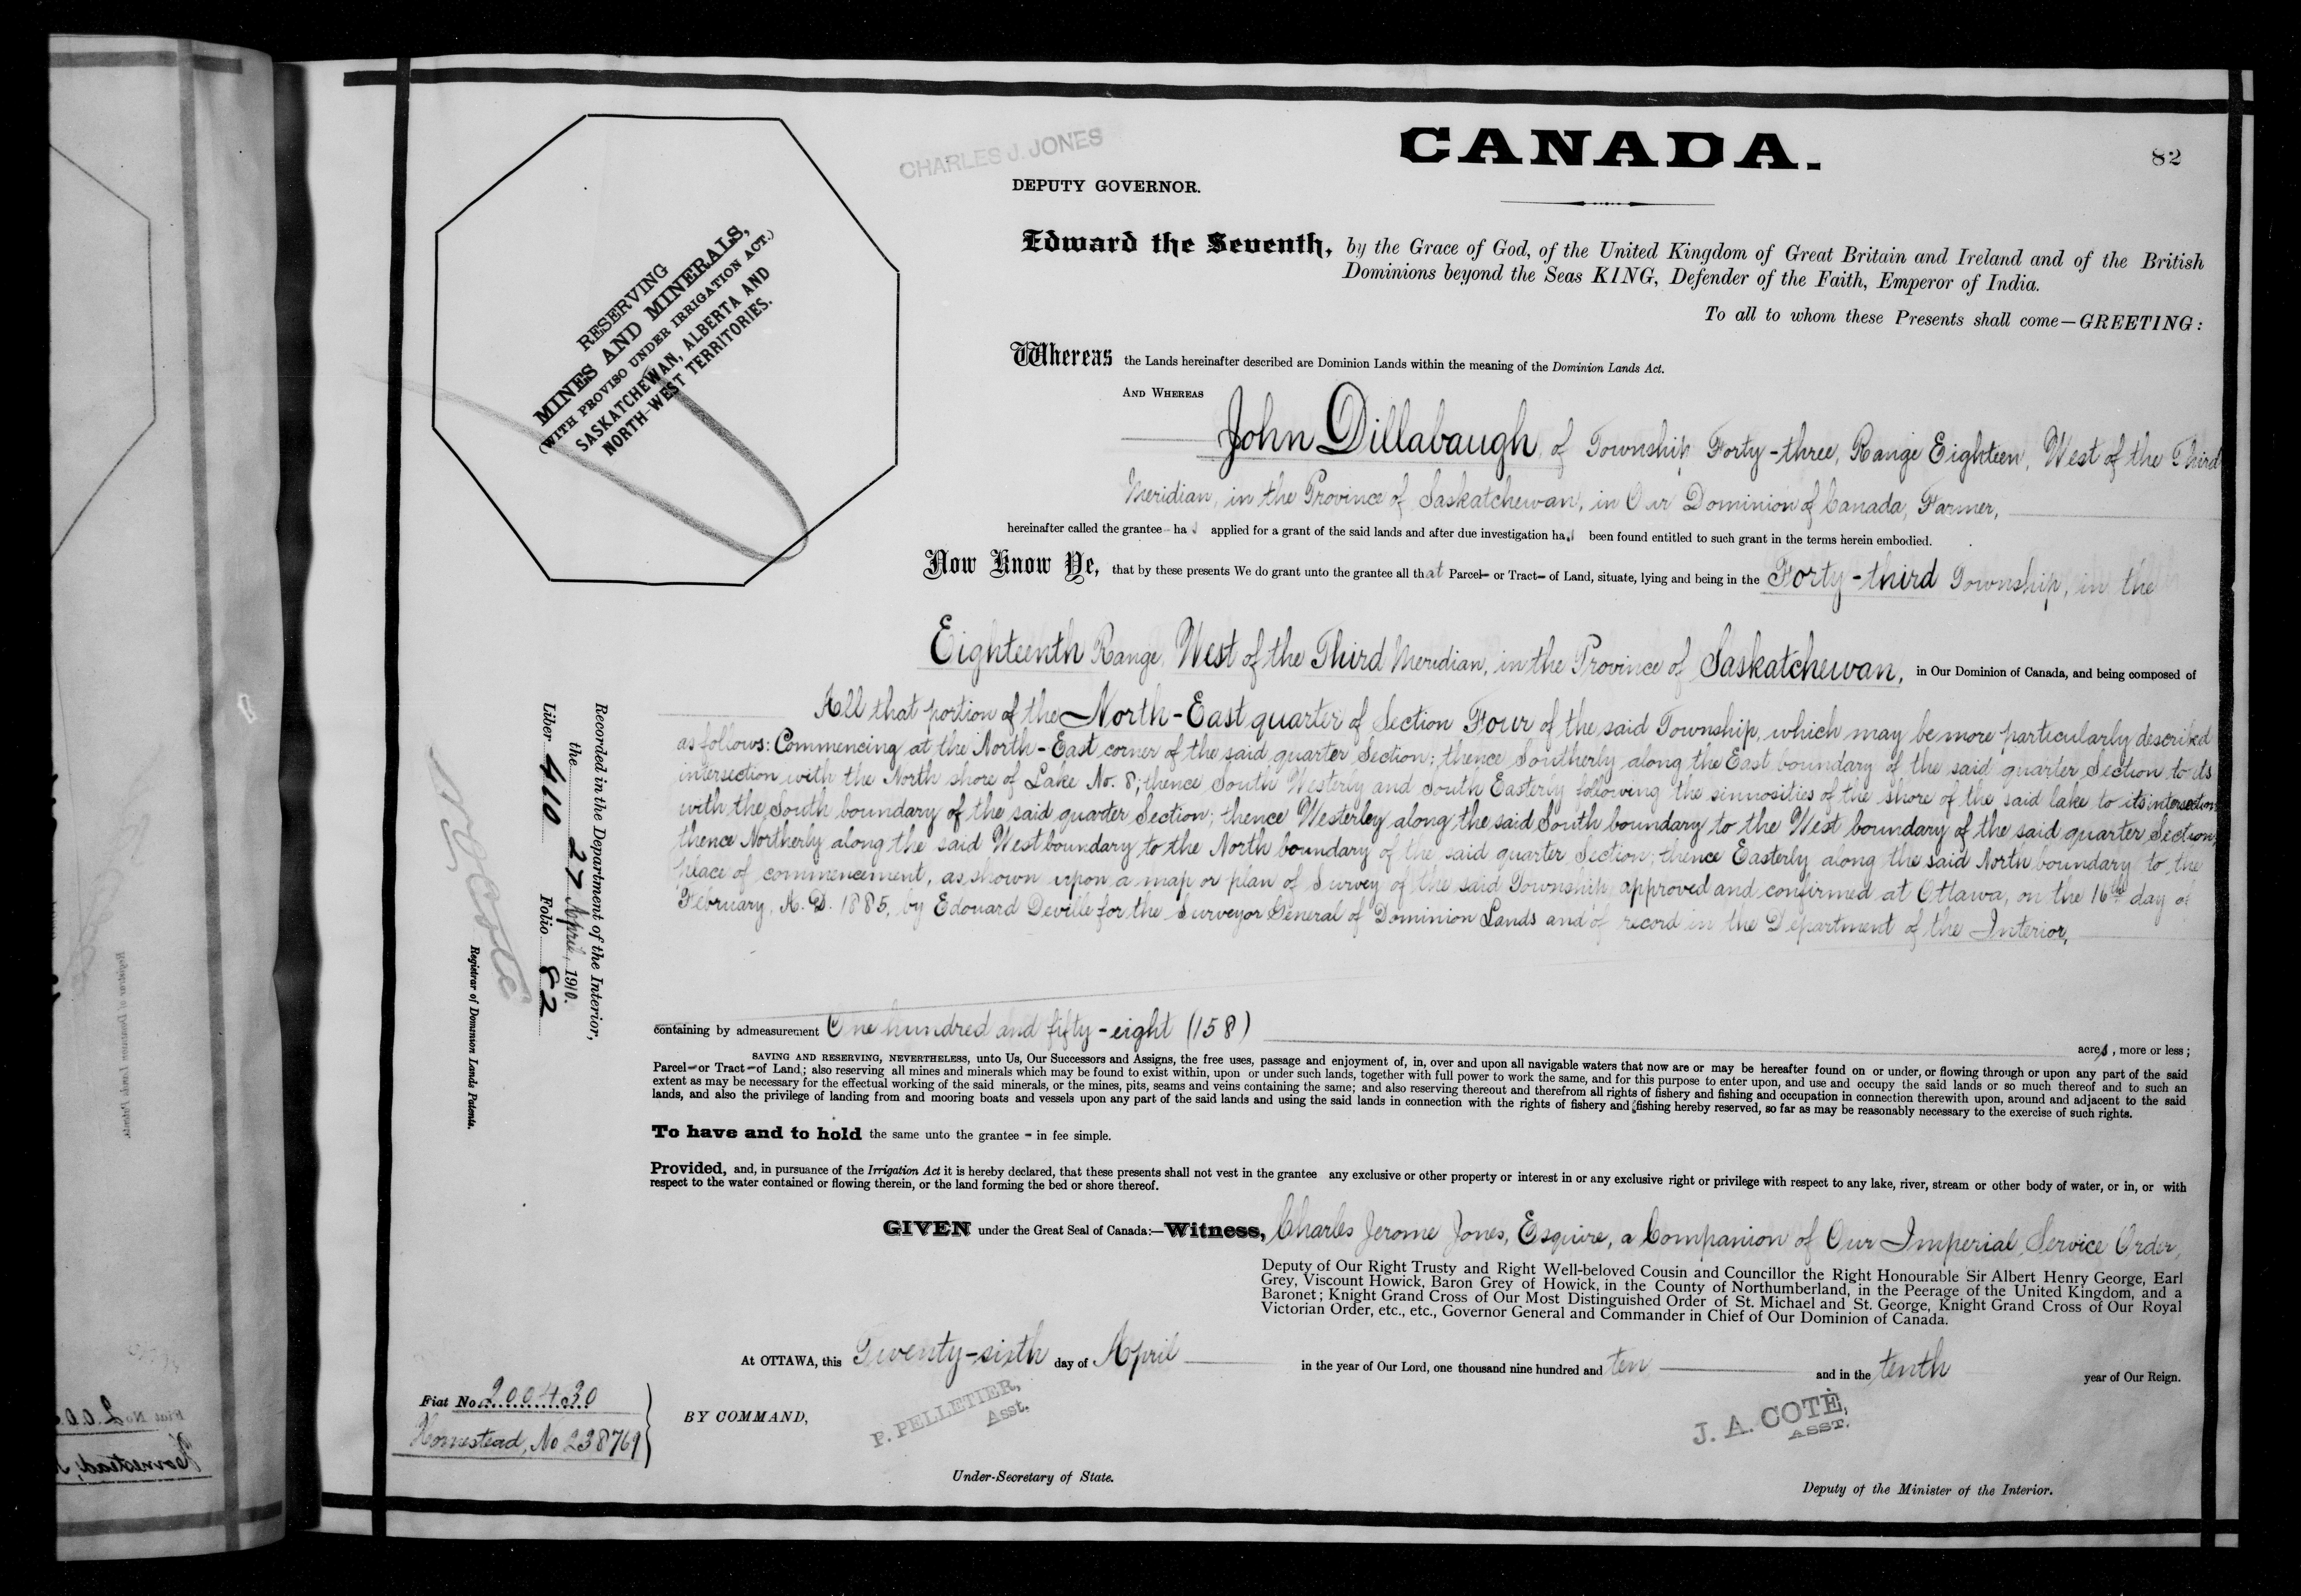 CANADA.
82
CHARLES J. JONES
DEPUTY GOVERNOR.
RESERVING
MINES AND MINERALS,
(WITH PROVISO UNDER IRRIGATION ACT.)
SASKATCHEWAN, ALBERTA AND
NORTH-WEST TERRITORIES.
Edward the Seventh, by the Grace of God, of the United Kingdom of Great Britain and Ireland and of the British
Dominions beyond the Seas KING, Defender of the Faith, Emperor of India.
To all to whom these Presents shall come—GREETING:
Whereas the Lands hereinafter described are Dominion Lands within the meaning of the Dominion Lands Act.
AND WHEREAS
John Dillabaugh, of Township Forty-three, Range Eighteen, West of the Third
Meridian, in the Province of Saskatchewan, in Our Dominion of Canada, Farmer,
hereinafter called the grantee - has applied for a grant of the said lands and after due investigation has been found entitled to such grant in the terms herein embodied.
Now Know Ye, that by these presents We do grant unto the grantee all that Parcel- or Tract- of Land, situate, lying and being in the Forty-third Township, in the
Eighteenth Range, West of the Third Meridian, in the Province of Saskatchewan, in Our Dominion of Canada, and being composed of
All that portion of the North-East quarter of Section Four of the said Township, which may be more particularly described
as follows: Commencing at the North-East corner of the said quarter Section; thence Southerly along the East boundary of the said quarter Section to its
intersection with the North shore of Lake No. 8; thence South Westerly and South Easterly following the sinuosities of the shore of the said lake to its intersection
with the South boundary of the said quarter Section; thence Westerley along the said South boundary to the West boundary of the said quarter Section;
thence Northerly along the said West boundary to the North boundary of the said quarter Section; thence Easterly along the said North boundary to the
place of commencement, as shown upon a map or plan of Survey of the said Township approved and confirmed at Ottawa, on the 16th day of
February, A. D. 1885, by Edouard Deville for the Surveyor General of Dominion Lands and of record in the Department of the Interior,
containing by admeasurement One hundred and fifty-eight (158) acres, more or less;
SAVING AND RESERVING, NEVERTHELESS, unto Us, Our Successors and Assigns, the free uses, passage and enjoyment of, in, over and upon all navigable waters that now are or may be hereafter found on or under, or flowing through or upon any part of the said
Parcel- or Tract- of Land; also reserving all mines and minerals which may be found to exist within, upon or under such lands, together with full power to work the same, and for this purpose to enter upon, and use and occupy the said lands or so much thereof and to such an
extent as may be necessary for the effectual working of the said minerals, or the mines, pits, seams and veins containing the same; and also reserving thereout and therefrom all rights of fishery and fishing and occupation in connection therewith upon, around and adjacent to the said
lands, and also the privilege of landing from and mooring boats and vessels upon any part of the said lands and using the said lands in connection with the rights of fishery and fishing hereby reserved, so far as may be reasonably necessary to the exercise of such rights.
To have and to hold the same unto the grantee - in fee simple.
Provided, and, in pursuance of the Irrigation Act it is hereby declared, that these presents shall not vest in the grantee any exclusive or other property or interest in or any exclusive right or privilege with respect to any lake, river, stream or other body of water, or in, or with
respect to the water contained or flowing therein, or the land forming the bed or shore thereof.
GIVEN under the Great Seal of Canada:—Witness, Charles Jerome Jones, Esquire, a Companion of Our Imperial Service Order,
Deputy of Our Right Trusty and Right Well-beloved Cousin and Councillor the Right Honourable Sir Albert Henry George, Earl
Grey, Viscount Howick, Baron Grey of Howick, in the County of Northumberland, in the Peerage of the United Kingdom, and a
Baronet; Knight Grand Cross of Our Most Distinguished Order of St. Michael and St. George, Knight Grand Cross of Our Royal
Victorian Order, etc., etc., Governor General and Commander in Chief of Our Dominion of Canada.
At OTTAWA, this Twenty-sixth day of April in the year of Our Lord, one thousand nine hundred and ten and in the tenth year of Our Reign.
BY COMMAND,
P. PELLETIER,
Asst.
Under-Secretary of State.
J. A. COTÉ,
ASST.
Deputy of the Minister of the Interior.
Recorded in the Department of the Interior,
the 27 April, 1910.
Liber 410 Folio 82
Registrar of Dominion Lands Patents.
Fiat No. 200430
Homestead, No 238769